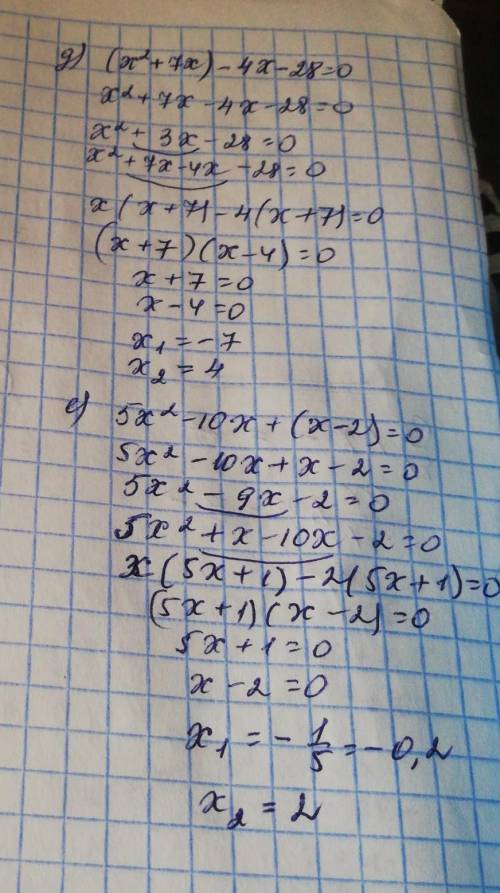 д) (x²+7x)-4x-28=0
x²+7x-4x-28=0
x²+3x-28=0
x²+7x-4x-28=0
x(x+7)-4(x+7)=0
(x+7)(x-4)=0
x+7=0
x-4=0
x₁=-7
x₂=4
е) 5x²-10x+(x-2)=0
5x²-10x+x-2=0
5x²-9x-2=0
5x²+x-10x-2=0
x(5x+1)-2(5x+1)=0
(5x+1)(x-2)=0
5x+1=0
x-2=0
x₁=-1/5=-0,2
x₂=2